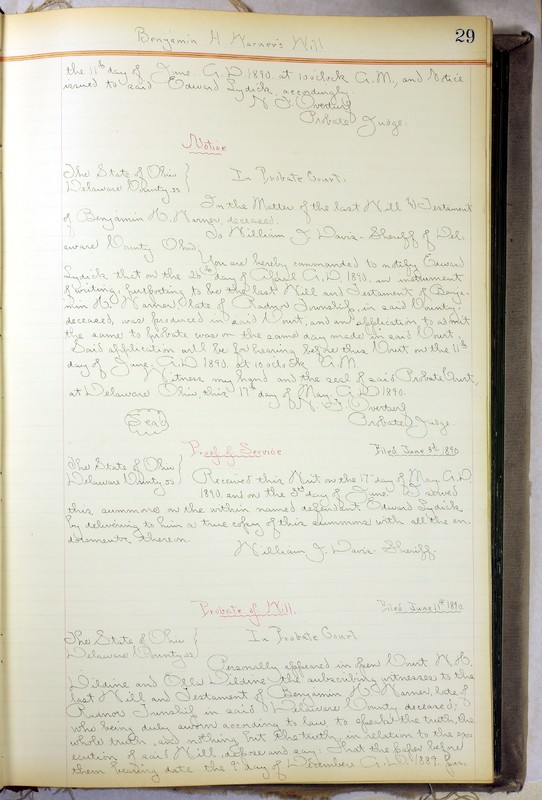 Benjamin H. Warner's Will
29
the 11th day of June A.D. 1890 at 10 o'clock A.M., and Notice
issued to said Edward Lydick, accordingly.
N. F. Overturf
Probate Judge.
Notice
The State of Ohio
Delaware County, ss
In Probate Court.
In the Matter of the last Will & Testament
of Benjamin H. Warner, deceased.
To William J. Davis - Sheriff of Del-
aware County Ohio;
You are hereby commanded to notify Edward
Lydick that on the 26th day of April A.D. 1890, an instrument
of writing, purporting to be the last Will and Testament of Benja-
min H. Warner, late of Radnor Township, in said County,
deceased, was produced in said Court, and an application to admit
the same to probate was on the same day made in said Court.
Said application will be for hearing before this Court on the 11th
day of June, A.D. 1890. at 10 o'clock A.M.
Witness my hand and the seal of said Probate Court,
at Delaware Ohio, this 17th day of May A.D. 1890.
N. F. Overturf
Seal
Probate Judge
Proof of Service
Filed June 3rd 1890
The State of Ohio
Delaware County ss
Received this Writ on the 17th day of May A.D.
1890, and on the 3rd day of June I served
this summons on the within named defendant Edward Lydick
by delivering to him a true copy of this summons with all the en-
dorsements thereon.
William J. Davis - Sheriff.
Probate of Will.
Filed June 11th 1890
The State of Ohio
Delaware County ss
In Probate Court
Personally appeared in open Court W. H.
and Ella the subscribing witnesses to the
last Will and Testament of Benjamin H. Warner, late of
Radnor Township in said Delaware County deceased;
who being duly sworn according to law, to speak the truth, the
whole truth, and nothing but the truth, in relation to the exe
cution of said Will, depose and say: That the paper before
them bearing date the 9th day of December A.D. 1889. pur-